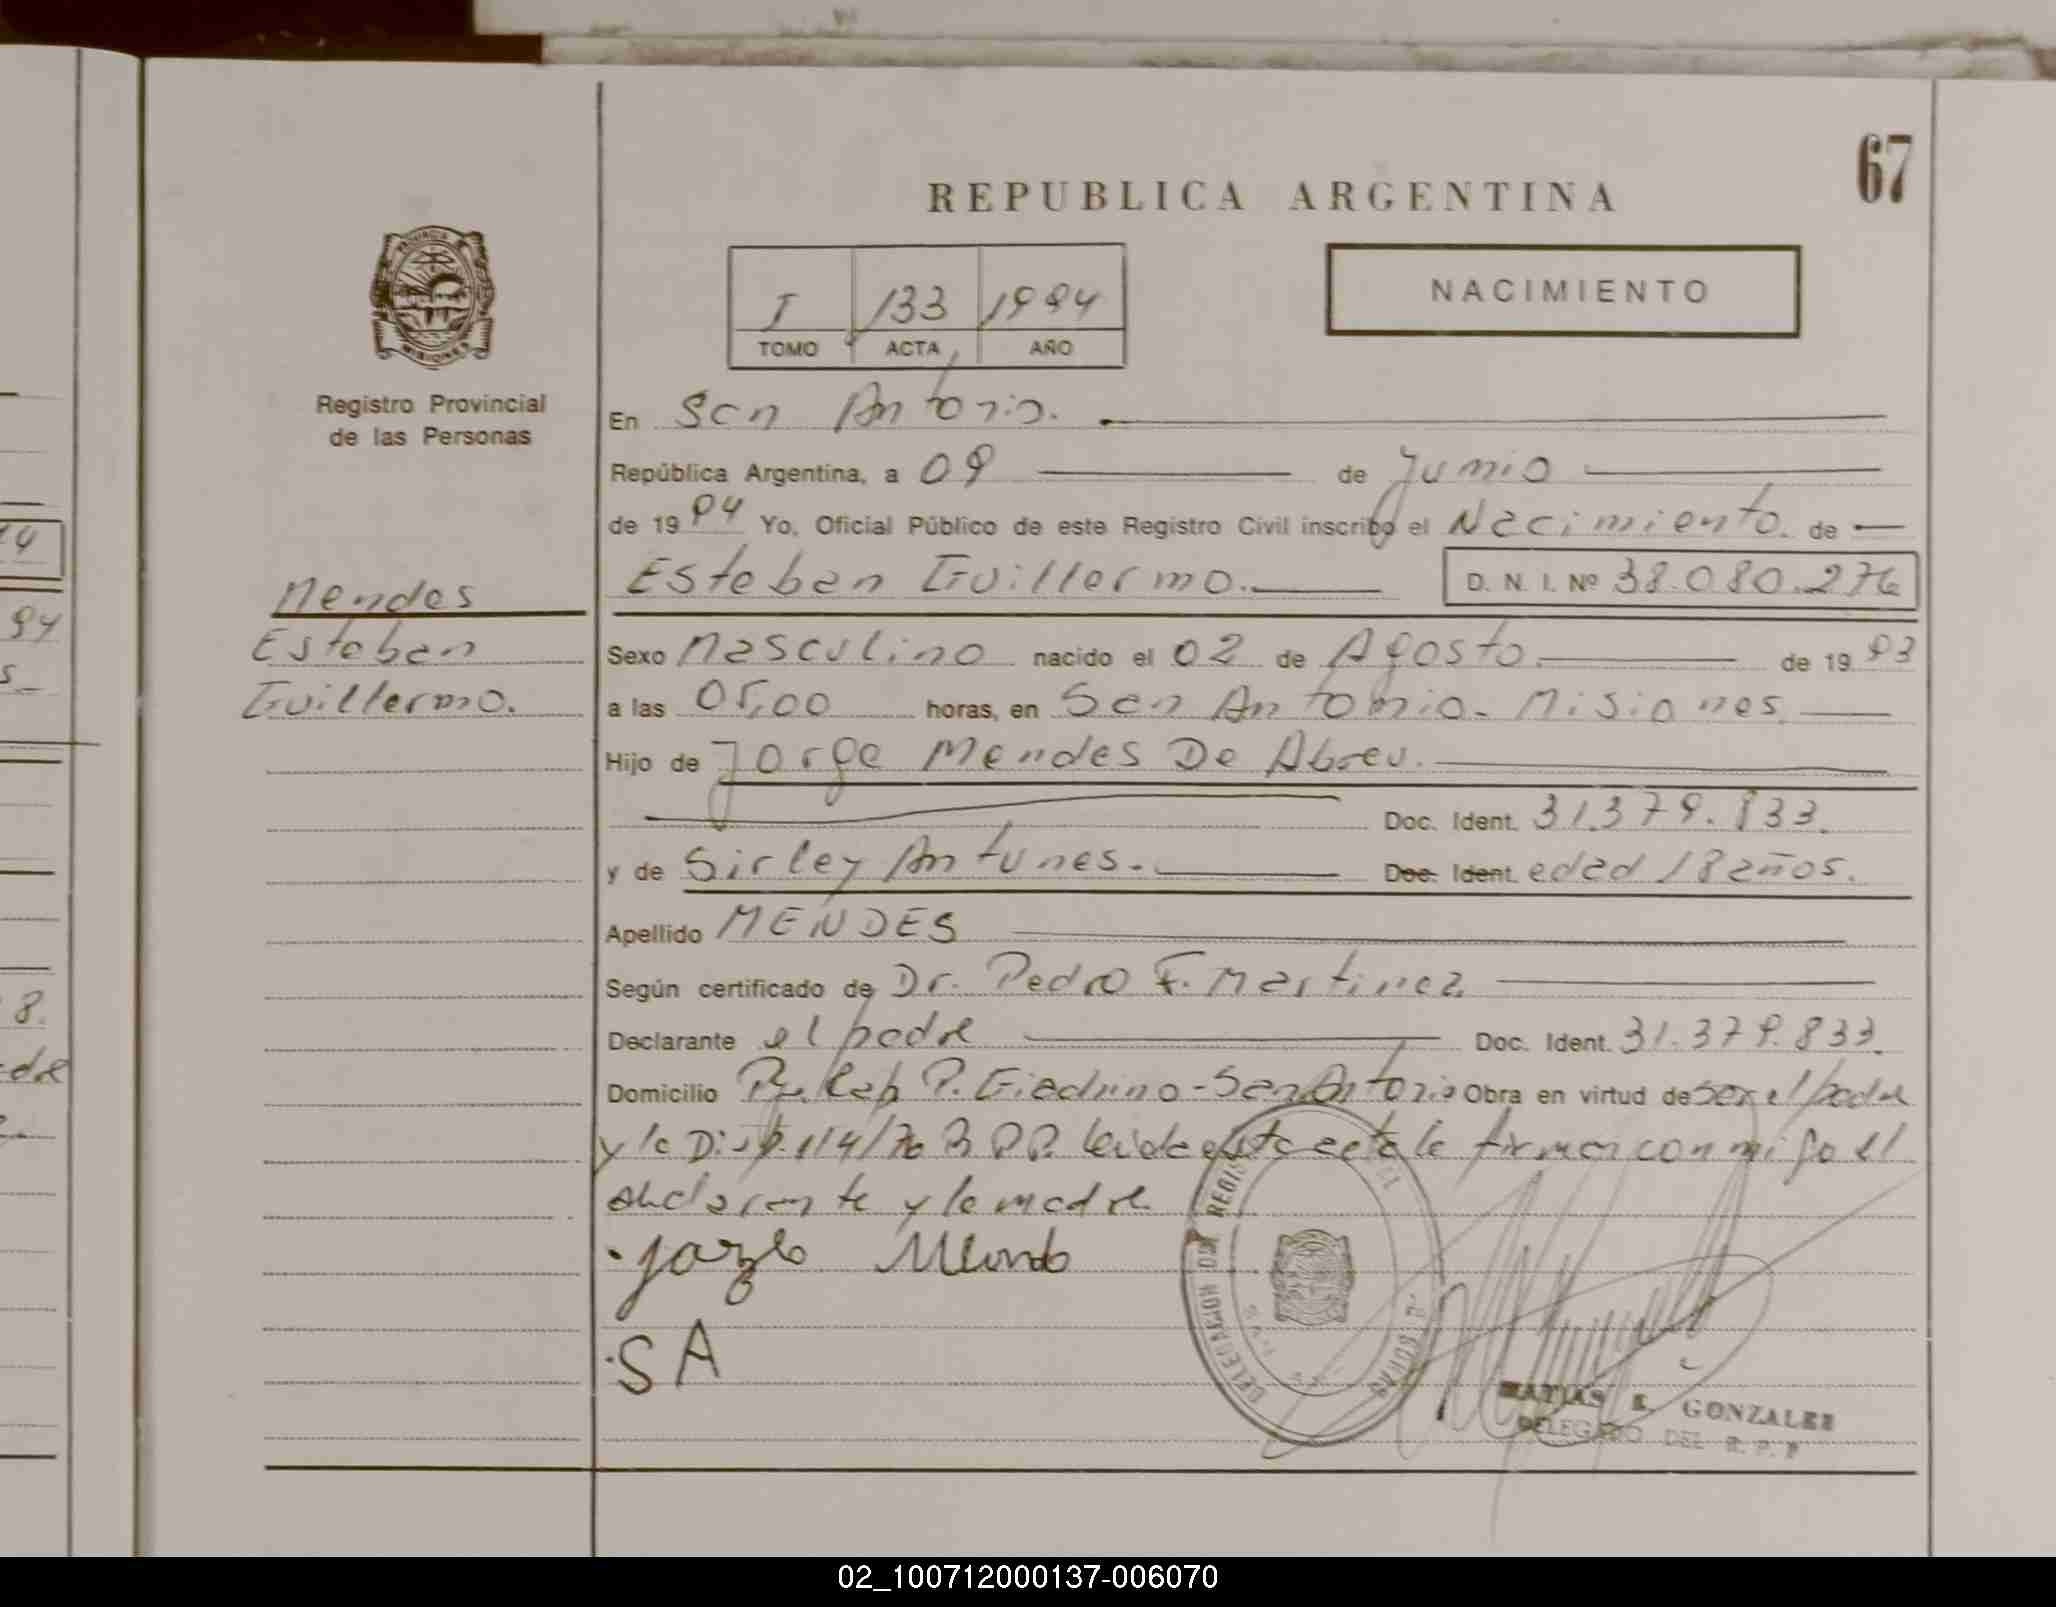 67
REPUBLICA ARGENTINA
NACIMIENTO
I 133 1994
TOMO ACTA AÑO
PROVINCIA
MISIONES
Registro Provincial
de las Personas
En San Antonio.
República Argentina, a 09 de Junio
de 1994 Yo, Oficial Público de este Registro Civil inscribo el Nacimiento. de
Esteban Guillermo. D. N. I. Nº 38.080.276
Mendes
Esteban
Guillermo.
Sexo Masculino nacido el 02 de Agosto. de 1993
a las 05,00 horas, en San Antonio- Misiones.
Hijo de Jorge Mendes De Abreu.
Doc. Ident. 31.379.833.
y de Sirley Antunes. Doc. Ident. edad 18 años.
Apellido MENDES
Según certificado de Dr. Pedro F. Martinez
Declarante el padre Doc. Ident. 31.379.833.
Domicilio P. - San Antonio Obra en virtud de ser el padre
y la Disp. 114/76 R.P.P. leida esta acta la firman conmigo el
declarante y la madre.
SA
DELEGACION DEL REGISTRO
MATIAS E. GONZALEZ
DELEGADO DEL R. P. P
02_100712000137-006070